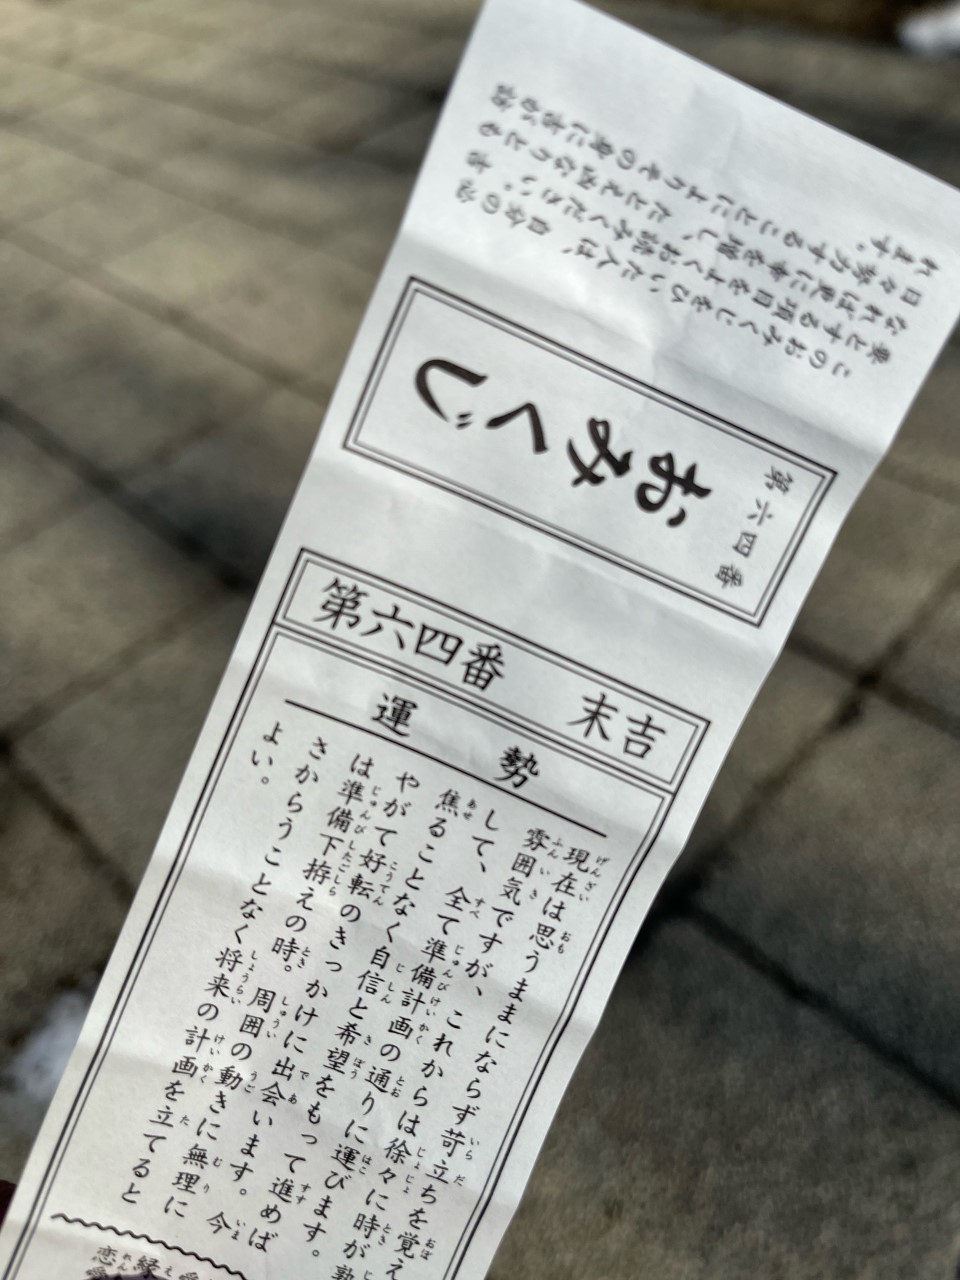 このおみくじをひいた人は、自分の必
要とする項目をよくお読みください。吉
なれば更に幸を増し、たとえ凶なりとも
日々努力することによりその身に吉が訪
れます。
おみくじ
第六四番
第六四番 末吉
運勢
現在は思うままにならず苛立ちを覚え
雰囲気ですが、これからは徐々に時が熟
して、全て準備計画の通りに運びます。
焦ることなく自信と希望をもって進めば
やがて好転のきっかけに出会います。今
は準備下拵えの時。周囲の動きに無理に
さからうことなく将来の計画を立てると
よい。